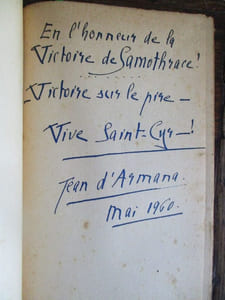 En l'honneur de la
Victoire de Samothrace!
Victoire sur le pire –
Vive Saint-Cyr –!
Jean d'Armana.
Mai 1960.